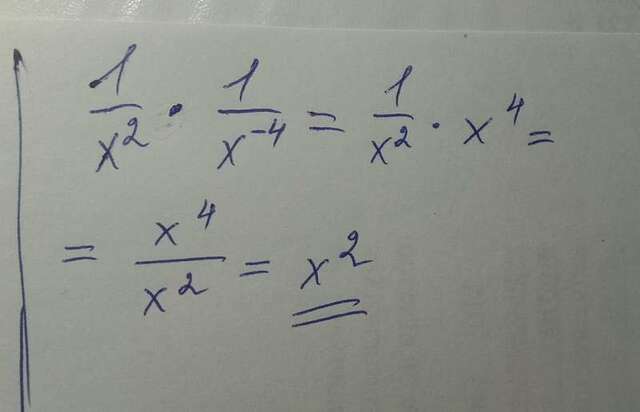 1/x² · 1/x⁻⁴ = 1/x² · x⁴ =
= x⁴/x² = x²